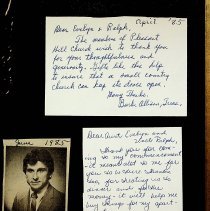 April '85
Dear Evelyn & Ralph,
The members of Pleasant
Hill Church wish to thank you
for your thoughtfulness and
generosity. Gifts like this help
to insure that a small country
church can keep its doors open.
Many Thanks,
Allison, Treas.
June 1985
Dear Aunt Evelyn and
Uncle Ralph,
Thank you for com-
ing to my commencement
it meant a lot to me for
you to be there. Thanks
too, for treating us to
dinner and for the
money - it will help me
buy things for my apart-